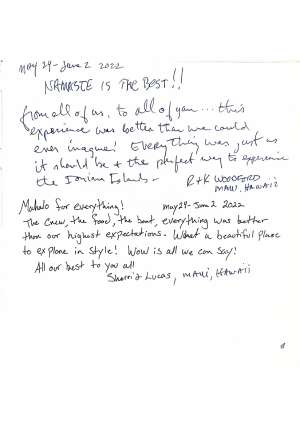 May 24 - June 2 2022
NAMASTE IS THE BEST!!
from all of us, to all of you... this
experience was better than we could
ever imagine! Everything was just as
it should be + the perfect way to experience
the Ionian Islands -
R+K WOODFORD
MAUI, HAWAII
Mahalo for everything! may 24 - June 2 2022
The crew, the food, the boat, everything was better
than our highest expectations. What a beautiful place
to explore in style! Wow is all we can say!
All our best to you all
Lucas, MAUI, HAWAII